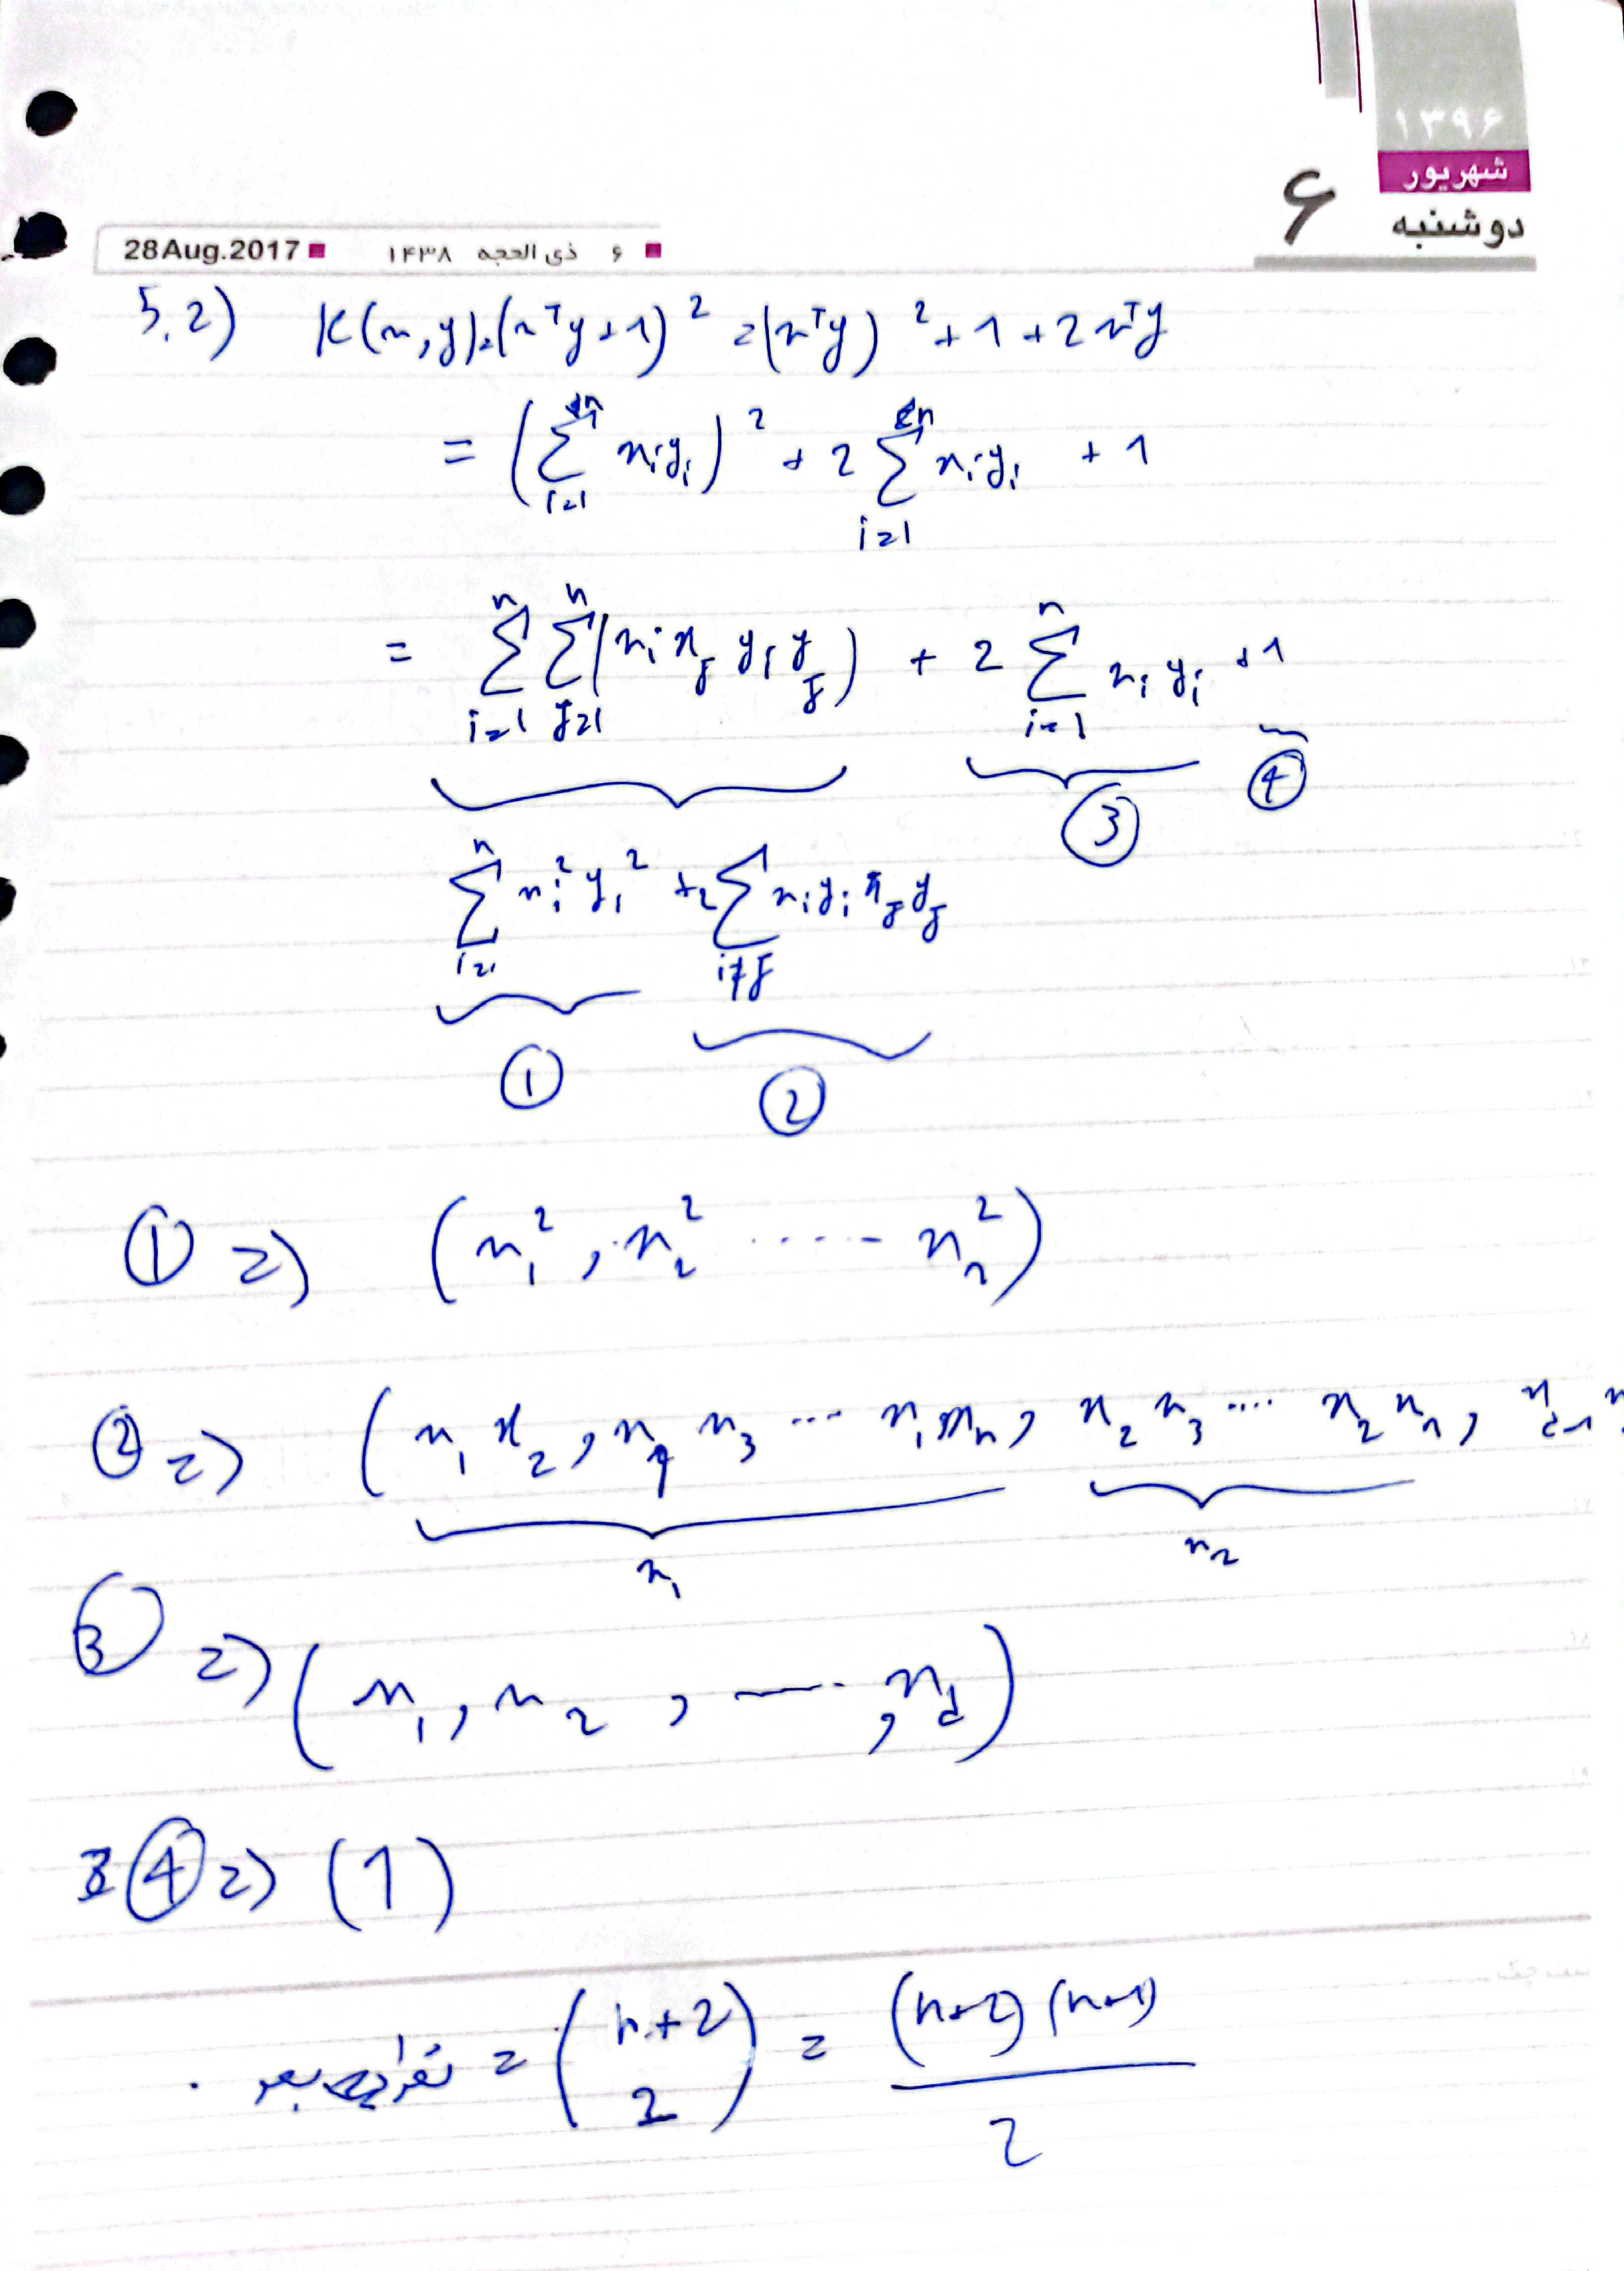 ۱۳۹۶
شهریور
دوشنبه
۶
28Aug.2017 ■ ۶ ذی الحجه ۱۴۳۸ ■
5.2) K(x,y)=(xᵀy+1)² =(xᵀy)²+1+2xᵀy
= (∑ᵢ₌₁ⁿ xᵢyᵢ)² + 2 ∑ᵢ₌₁ⁿ xᵢyᵢ + 1
= ∑ᵢ₌₁ⁿ ∑ⱼ₌₁ⁿ (xᵢ xⱼ yᵢ yⱼ) + 2 ∑ᵢ₌₁ⁿ xᵢ yᵢ +1
③ ④
∑ᵢ₌₁ⁿ xᵢ² yᵢ² +2 ∑ i≠j xᵢyᵢ xⱼyⱼ
① ②
① => (x₁², x₂² ..... xₙ²)
② => (x₁ x₂, x₁ x₃ ... x₁xₙ, x₂ x₃ .... x₂ xₙ,
x₁ x₂
③ => (x₁, x₂, ...., x_d)
④ => (1)
= (n+2 2) = (n+2)(n+1) / 2